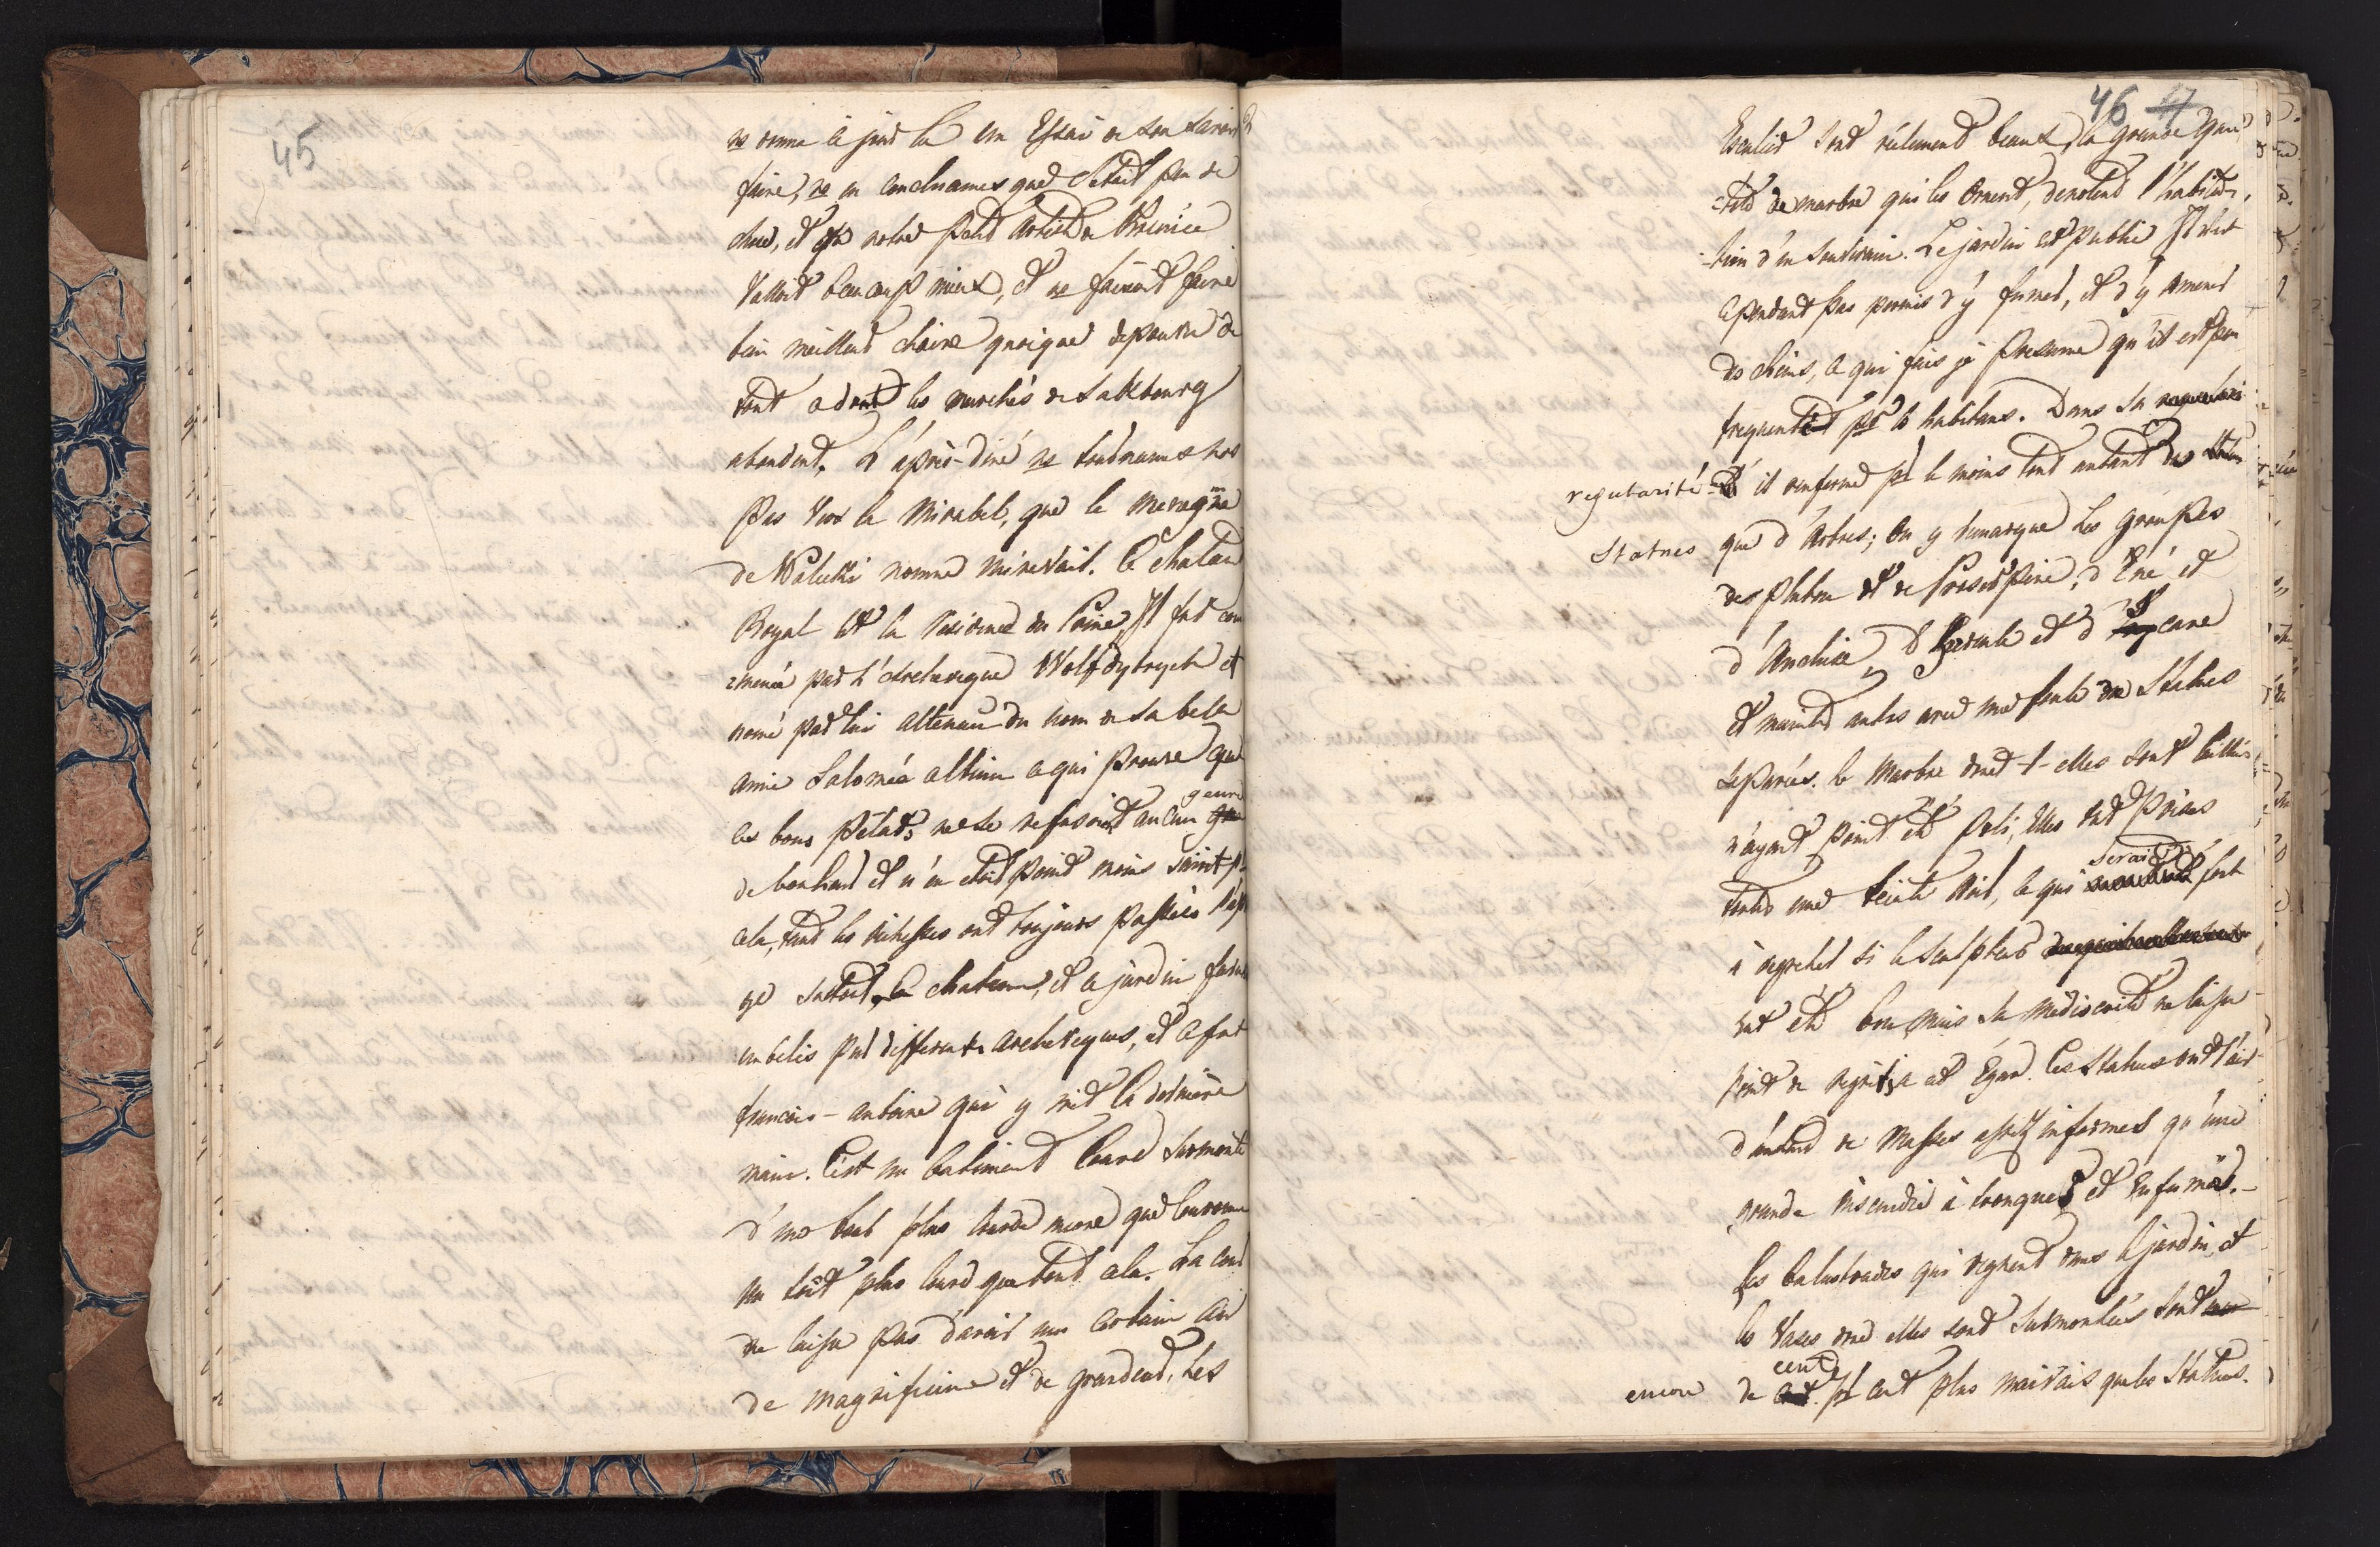 45
ns donna ce jour la un Essai de son savoir
faire, ns en conclumes que c'etait peu de
chose, et que notre petit Artiste de
Vallait beaucoup mieux, et ns faisait faire
bien meilleur chaire quoique depourvu de
tout ce dont les marchés de Saltzbourg
abondent. L'après-diné ns tournames nos
pas vers le Mirabel, que le
de nomme mirevail. Ce chateau
Royal est la residence du Prince Il fut com
mencé par l'Archeveque Wolf dytrych et
nomé par lui altenau du nom de sa belle
amie Salomée altinn ce qui prouve que
ces bons Prélats ne se refusoient aucun genre
de bonheur et n'en etoit point moins saint pr
cela, tant les richesses ont toujours
le chateau, et ce jardin furent
embelis par differents archeveques, et ce fut
francois-antoine qui y mit la derniere
main. C'est un batiment lourd surmonté
d'une tour plus lourde encore que couronne
un toit plus lourd que tout cela. La cour
ne laisse pas d'avoir un certain air
de magnificence et de grandeur, Les
46 47
Escaliers sont réelement beaux, la grande quan
-tité de marbre qui les Ornent, denotent l'habita-
-tion d'un souverain. Le jardin est public Il n'est
cependant pas permis d'y fumer, et d'y amener
des chiens, ce qui fais je presume qu'il est peu
frequenté pr les habitans. Dans sa
regularité il renferme pr le moins tout autant de
Statues que d'Arbres; On y remarque les grouppes
de Pluton et de Proserpine, d'Ené et
d'Anchise, d'Hercule et d'
et maints autres avec une foule de Statues
separées. le Marbre dont-t-elles sont taillés
n'ayant point été poli, Elles ont prises
toutes une teinte noir, ce qui serait fort
à regretter si le sculpteur
eut été bon, mais sa médiocrité ne laisse
point de regrets a cet Égard. Ces Statues ont l'air
d'autant de Masses assez informes qu'une
grande inscendie à tronques et Enfumées.-
Les balustrades qui regnent dans ce jardin, et
les Vases dont elles sont surmontées sont
encore de cent pr cent plus mauvais que les Statues.